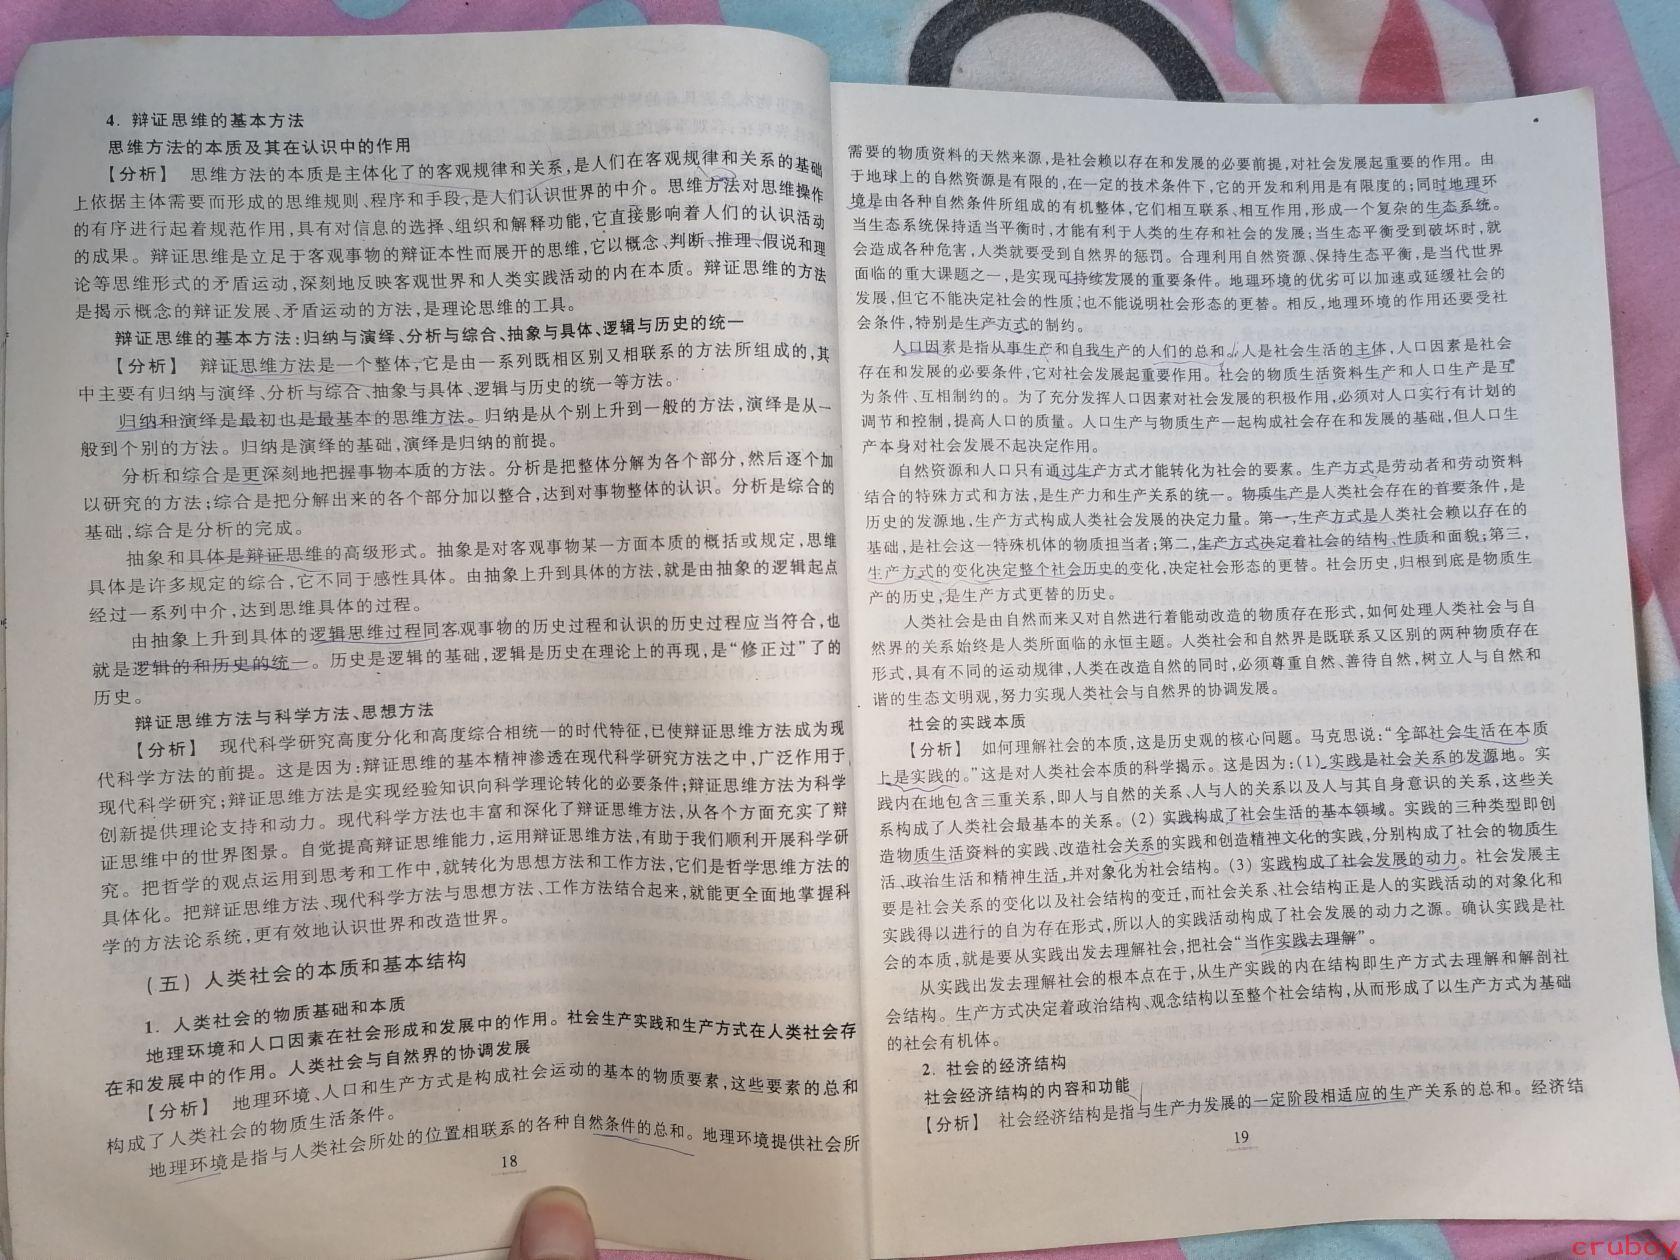 4. 辩证思维的基本方法
思维方法的本质及其在认识中的作用
【分析】 思维方法的本质是主体化了的客观规律和关系,是人们在客观规律和关系的基础
上依据主体需要而形成的思维规则、程序和手段,是人们认识世界的中介。思维方法对思维操作
的有序进行起着规范作用,具有对信息的选择、组织和解释功能,它直接影响着人们的认识活动
的成果。辩证思维是立足于客观事物的辩证本性而展开的思维,它以概念、判断、推理、假说和理
论等思维形式的矛盾运动,深刻地反映客观世界和人类实践活动的内在本质。辩证思维的方法
是揭示概念的辩证发展、矛盾运动的方法,是理论思维的工具。
辩证思维的基本方法:归纳与演绎、分析与综合、抽象与具体、逻辑与历史的统一
【分析】 辩证思维方法是一个整体,它是由一系列既相区别又相联系的方法所组成的,其
中主要有归纳与演绎、分析与综合、抽象与具体、逻辑与历史的统一等方法。
归纳和演绎是最初也是最基本的思维方法。归纳是从个别上升到一般的方法,演绎是从一
般到个别的方法。归纳是演绎的基础,演绎是归纳的前提。
分析和综合是更深刻地把握事物本质的方法。分析是把整体分解为各个部分,然后逐个加
以研究的方法;综合是把分解出来的各个部分加以整合,达到对事物整体的认识。分析是综合的
基础,综合是分析的完成。
抽象和具体是辩证思维的高级形式。抽象是对客观事物某一方面本质的概括或规定,思维
具体是许多规定的综合,它不同于感性具体。由抽象上升到具体的方法,就是由抽象的逻辑起点
经过一系列中介,达到思维具体的过程。
由抽象上升到具体的逻辑思维过程同客观事物的历史过程和认识的历史过程应当符合,也
就是逻辑的和历史的统一。历史是逻辑的基础,逻辑是历史在理论上的再现,是“修正过”了的
历史。
辩证思维方法与科学方法、思想方法
【分析】 现代科学研究高度分化和高度综合相统一的时代特征,已使辩证思维方法成为现
代科学方法的前提。这是因为:辩证思维的基本精神渗透在现代科学研究方法之中,广泛作用于
现代科学研究;辩证思维方法是实现经验知识向科学理论转化的必要条件;辩证思维方法为科学
创新提供理论支持和动力。现代科学方法也丰富和深化了辩证思维方法,从各个方面充实了辩
证思维中的世界图景。自觉提高辩证思维能力,运用辩证思维方法,有助于我们顺利开展科学研
究。把哲学的观点运用到思考和工作中,就转化为思想方法和工作方法,它们是哲学思维方法的
具体化。把辩证思维方法、现代科学方法与思想方法、工作方法结合起来,就能更全面地掌握科
学的方法论系统,更有效地认识世界和改造世界。
(五)人类社会的本质和基本结构
1. 人类社会的物质基础和本质
地理环境和人口因素在社会形成和发展中的作用。社会生产实践和生产方式在人类社会存
在和发展中的作用。人类社会与自然界的协调发展
【分析】 地理环境、人口和生产方式是构成社会运动的基本的物质要素,这些要素的总和
构成了人类社会的物质生活条件。
地理环境是指与人类社会所处的位置相联系的各种自然条件的总和。地理环境提供社会所
18
需要的物质资料的天然来源,是社会赖以存在和发展的必要前提,对社会发展起重要的作用。由
于地球上的自然资源是有限的,在一定的技术条件下,它的开发和利用是有限度的;同时地理环
境是由各种自然条件所组成的有机整体,它们相互联系、相互作用,形成一个复杂的生态系统。
当生态系统保持适当平衡时,才能有利于人类的生存和社会的发展;当生态平衡受到破坏时,就
会造成各种危害,人类就要受到自然界的惩罚。合理利用自然资源、保持生态平衡,是当代世界
面临的重大课题之一,是实现可持续发展的重要条件。地理环境的优劣可以加速或延缓社会的
发展,但它不能决定社会的性质,也不能说明社会形态的更替。相反,地理环境的作用还要受社
会条件,特别是生产方式的制约。
人口因素是指从事生产和自我生产的人们的总和。人是社会生活的主体,人口因素是社会
存在和发展的必要条件,它对社会发展起重要作用。社会的物质生活资料生产和人口生产是互
为条件、互相制约的。为了充分发挥人口因素对社会发展的积极作用,必须对人口实行有计划的
调节和控制,提高人口的质量。人口生产与物质生产一起构成社会存在和发展的基础,但人口生
产本身对社会发展不起决定作用。
自然资源和人口只有通过生产方式才能转化为社会的要素。生产方式是劳动者和劳动资料
结合的特殊方式和方法,是生产力和生产关系的统一。物质生产是人类社会存在的首要条件,是
历史的发源地,生产方式构成人类社会发展的决定力量。第一,生产方式是人类社会赖以存在的
基础,是社会这一特殊机体的物质担当者;第二,生产方式决定着社会的结构、性质和面貌;第三,
生产方式的变化决定整个社会历史的变化,决定社会形态的更替。社会历史,归根到底是物质生
产的历史,是生产方式更替的历史。
人类社会是由自然而来又对自然进行着能动改造的物质存在形式,如何处理人类社会与自
然界的关系始终是人类所面临的永恒主题。人类社会和自然界是既联系又区别的两种物质存在
形式,具有不同的运动规律,人类在改造自然的同时,必须尊重自然、善待自然,树立人与自然和
谐的生态文明观,努力实现人类社会与自然界的协调发展。
社会的实践本质
【分析】 如何理解社会的本质,这是历史观的核心问题。马克思说:“全部社会生活在本质
上是实践的。”这是对人类社会本质的科学揭示。这是因为:(1) 实践是社会关系的发源地。实
践内在地包含三重关系,即人与自然的关系、人与人的关系以及人与其自身意识的关系,这些关
系构成了人类社会最基本的关系。(2) 实践构成了社会生活的基本领域。实践的三种类型即创
造物质生活资料的实践、改造社会关系的实践和创造精神文化的实践,分别构成了社会的物质生
活、政治生活和精神生活,并对象化为社会结构。(3) 实践构成了社会发展的动力。社会发展主
要是社会关系的变化以及社会结构的变迁,而社会关系、社会结构正是人的实践活动的对象化和
实践得以进行的自为存在形式,所以人的实践活动构成了社会发展的动力之源。确认实践是社
会的本质,就是要从实践出发去理解社会,把社会“当作实践去理解”。
从实践出发去理解社会的根本点在于,从生产实践的内在结构即生产方式去理解和解剖社
会结构。生产方式决定着政治结构、观念结构以至整个社会结构,从而形成了以生产方式为基础
的社会有机体。
2. 社会的经济结构
社会经济结构的内容和功能
【分析】 社会经济结构是指与生产力发展的一定阶段相适应的生产关系的总和。经济结
19
cruboy